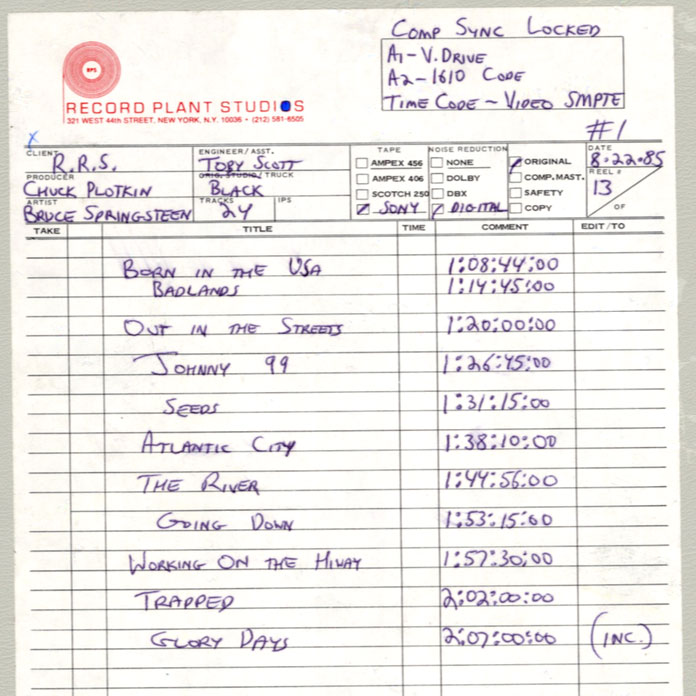 COMP SYNC LOCKED
A1-V.DRIVE
A2-1610 CODE
TIME CODE ~ VIDEO SMPTE
RPS
RECORD PLANT STUDIOS
321 WEST 44th STREET, NEW YORK, N.Y. 10036 • (212) 581-6505
#1
X
CLIENT R.R.S.
ENGINEER/ASST. TOBY SCOTT
TAPE
NOISE REDUCTION
DATE 8-22-85
AMPEX 456 NONE ORIGINAL
PRODUCER CHUCK PLOTKIN
ORIG. STUDIO/TRUCK BLACK
AMPEX 406 DOLBY COMP.MAST.
REEL # 13
SCOTCH 250 DBX SAFETY
ARTIST BRUCE SPRINGSTEEN
TRACKS 24
IPS
SONY DIGITAL COPY
OF
TAKE TITLE TIME COMMENT EDIT/TO
BORN IN THE USA 1:08:44:00
BADLANDS 1:14:45:00
OUT IN THE STREETS 1:20:00:00
JOHNNY 99 1:26:45:00
SEEDS 1:31:15:00
ATLANTIC CITY 1:38:10:00
THE RIVER 1:44:56:00
GOING DOWN 1:53:15:00
WORKING ON THE HIWAY 1:57:30:00
TRAPPED 2:02:00:00
GLORY DAYS 2:07:00:00 (INC.)